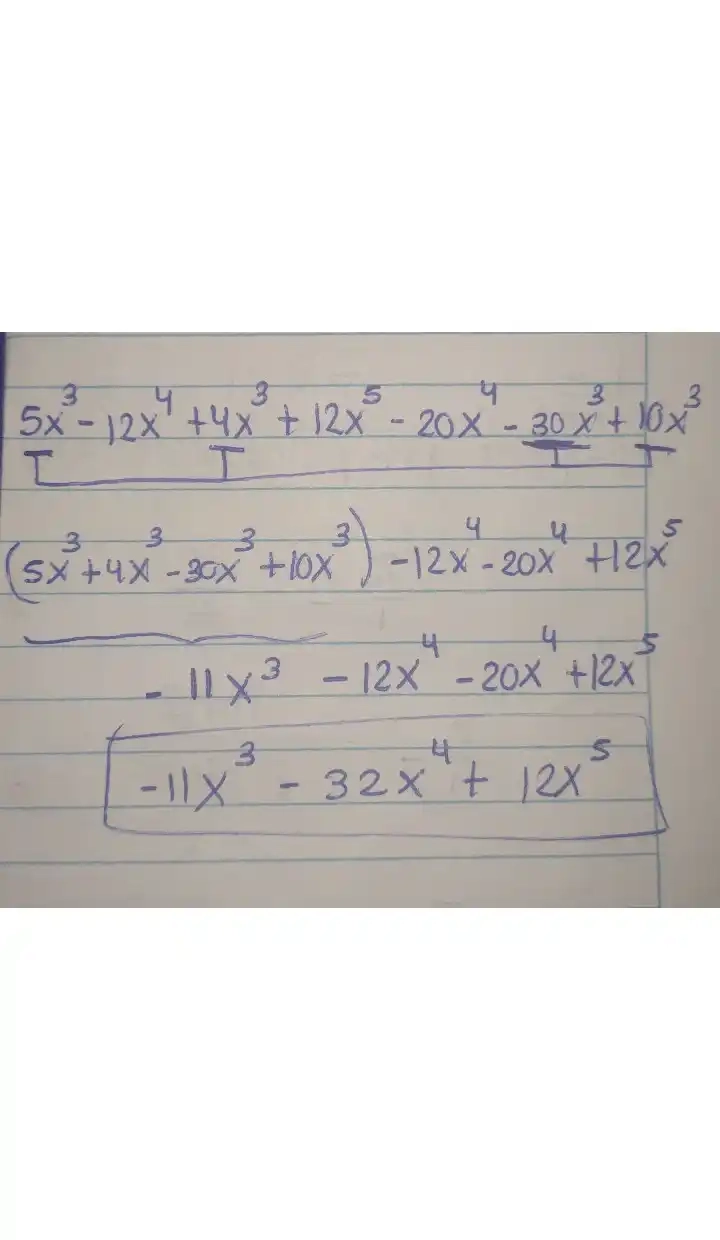 5x³ - 12x⁴ + 4x³ + 12x⁵ - 20x⁴ - 30x³ + 10x³
(5x³ + 4x³ - 30x³ + 10x³) - 12x⁴ - 20x⁴ + 12x⁵
- 11x³ - 12x⁴ - 20x⁴ + 12x⁵
- 11x³ - 32x⁴ + 12x⁵